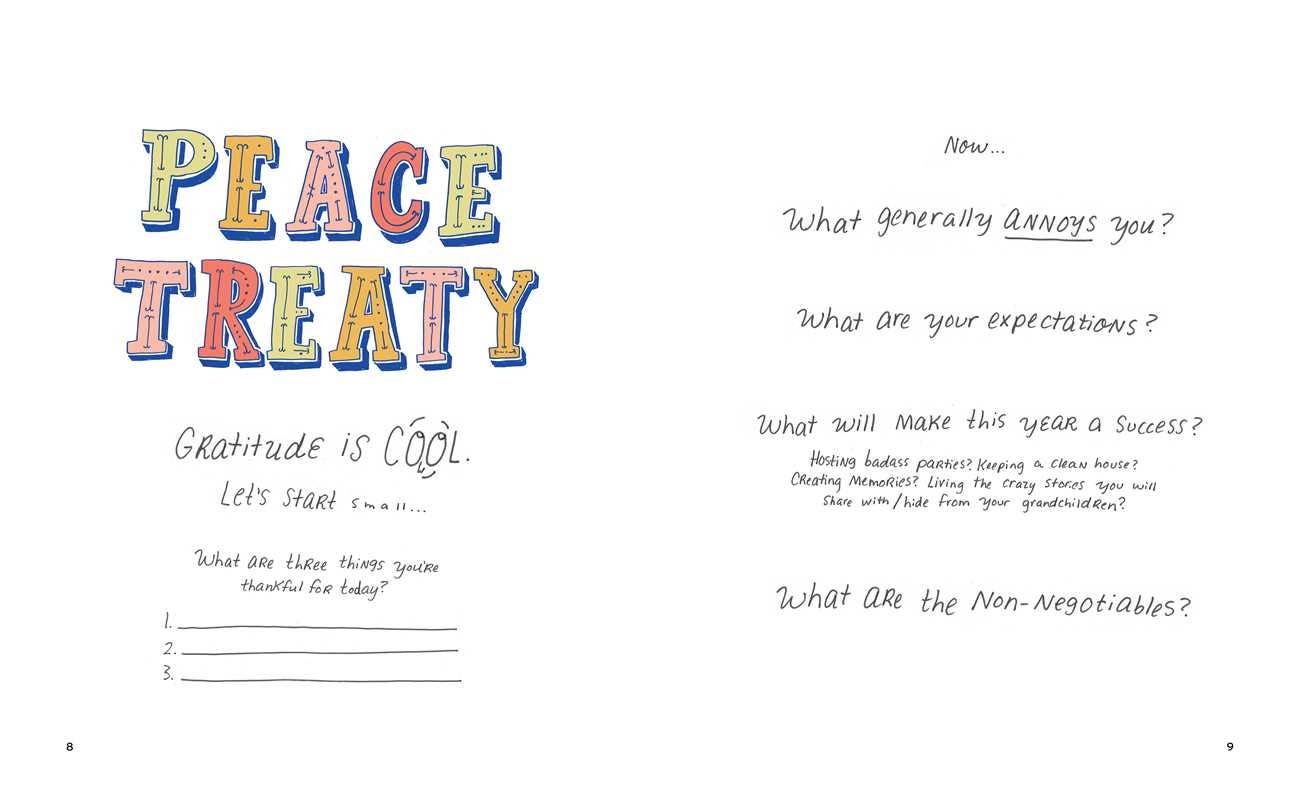 PEACE
TREATY
Gratitude is COOL.
Let's start small...
What are three things you're
thankful for today?
1.
2.
3.
8
Now...
What generally annoys you?
What are your expectations?
What will make this year a success?
Hosting badass parties? Keeping a clean house?
Creating memories? Living the crazy stories you will
share with/hide from your grandchildren?
What are the Non-Negotiables?
9